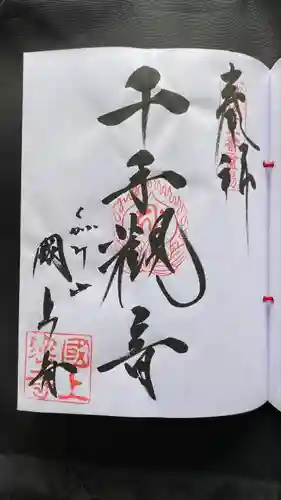 奉拝
千手觀音
くがみ山
國上寺
國上